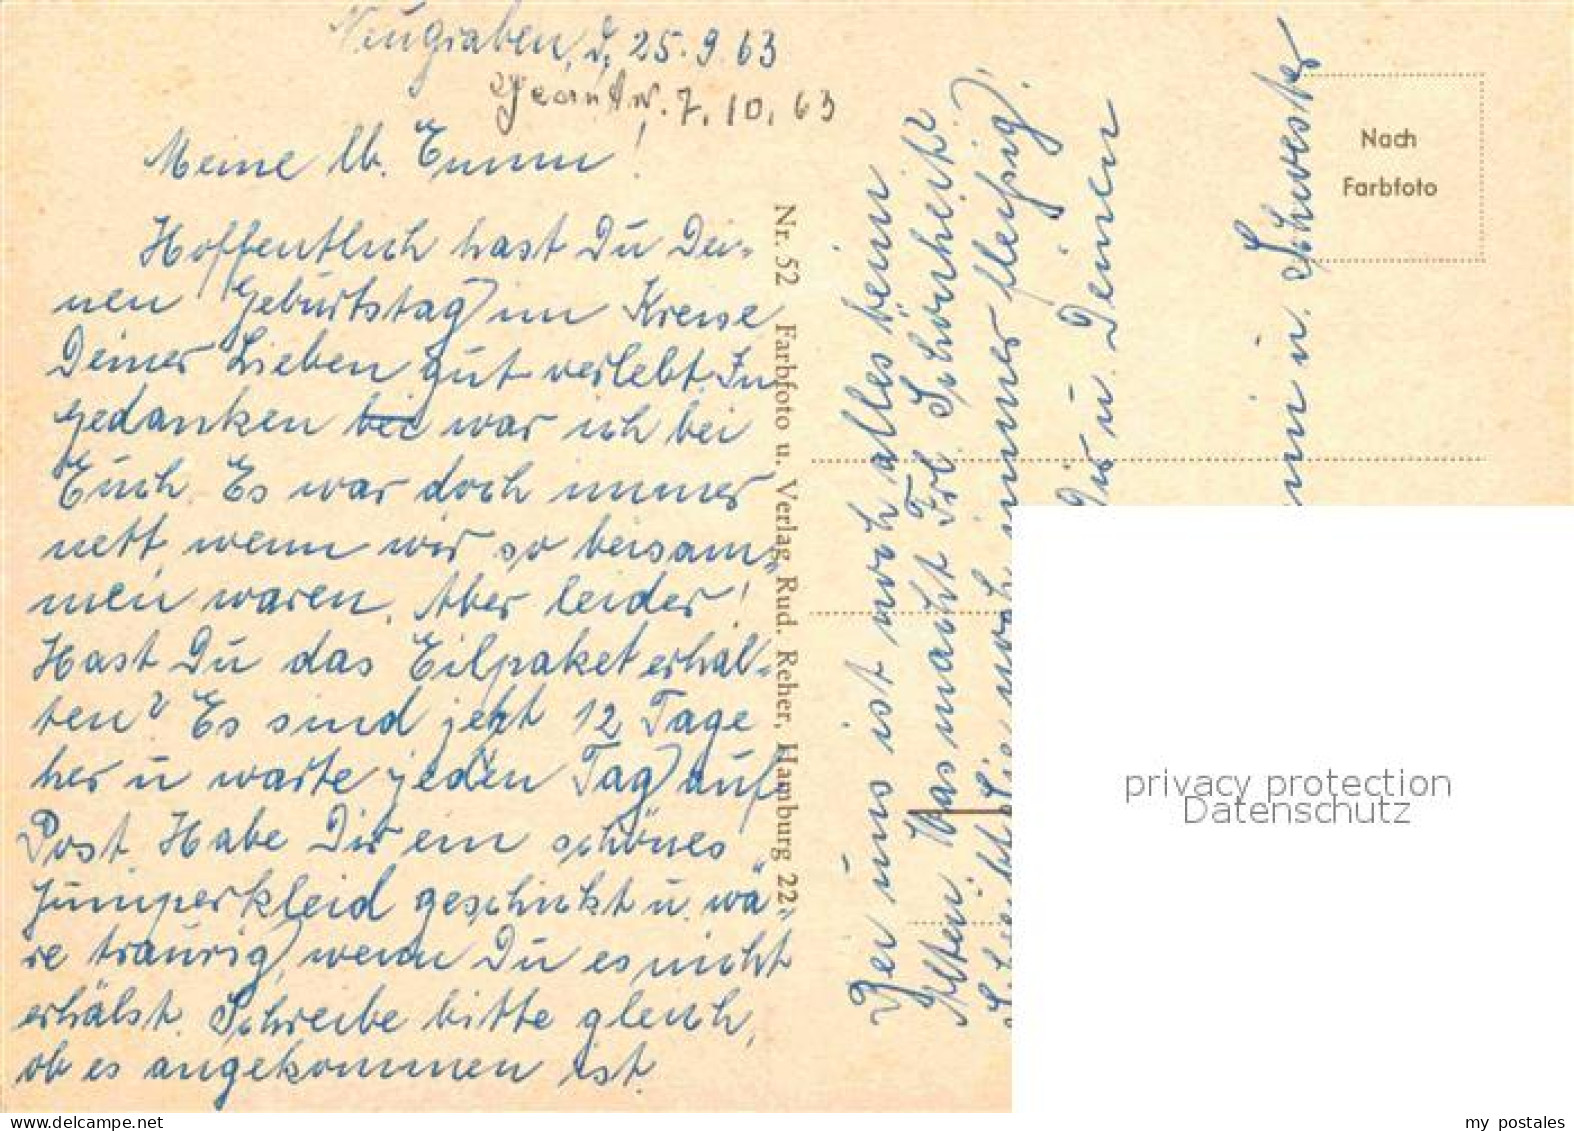 Neugraben, d. 25.9.63
Geantw. 7.10.63
Meine lb. Emmi!
Hoffentlich hast Du Dei-
nen Geburtstag im Kreise
Deiner Lieben gut verlebt. In
Gedanken bei war ich bei
Euch. Es war doch immer
nett wenn wir so beisam-
men waren. Aber leider!
Hast Du das Eilpaket erhal-
ten? Es sind jetzt 12 Tage
her u warte jeden Tag auf
Post. Habe Dir ein schönes
Jumperkleid geschickt u. wä-
re traurig, wenn Du es nicht
erhälst. Schreibe bitte gleich,
ob es angekommen ist.
Nr. 52 Farbfoto u. Verlag Rud. Reher, Hamburg 22
Bei uns ist noch alles beim
Alten. Was macht Frl. Schönheit?
Schreibt Sie noch immer fleißig?
Dir u. Deinen
u. Schwester
Nach
Farbfoto
privacy protection
Datenschutz
delcampe.net
my_postales